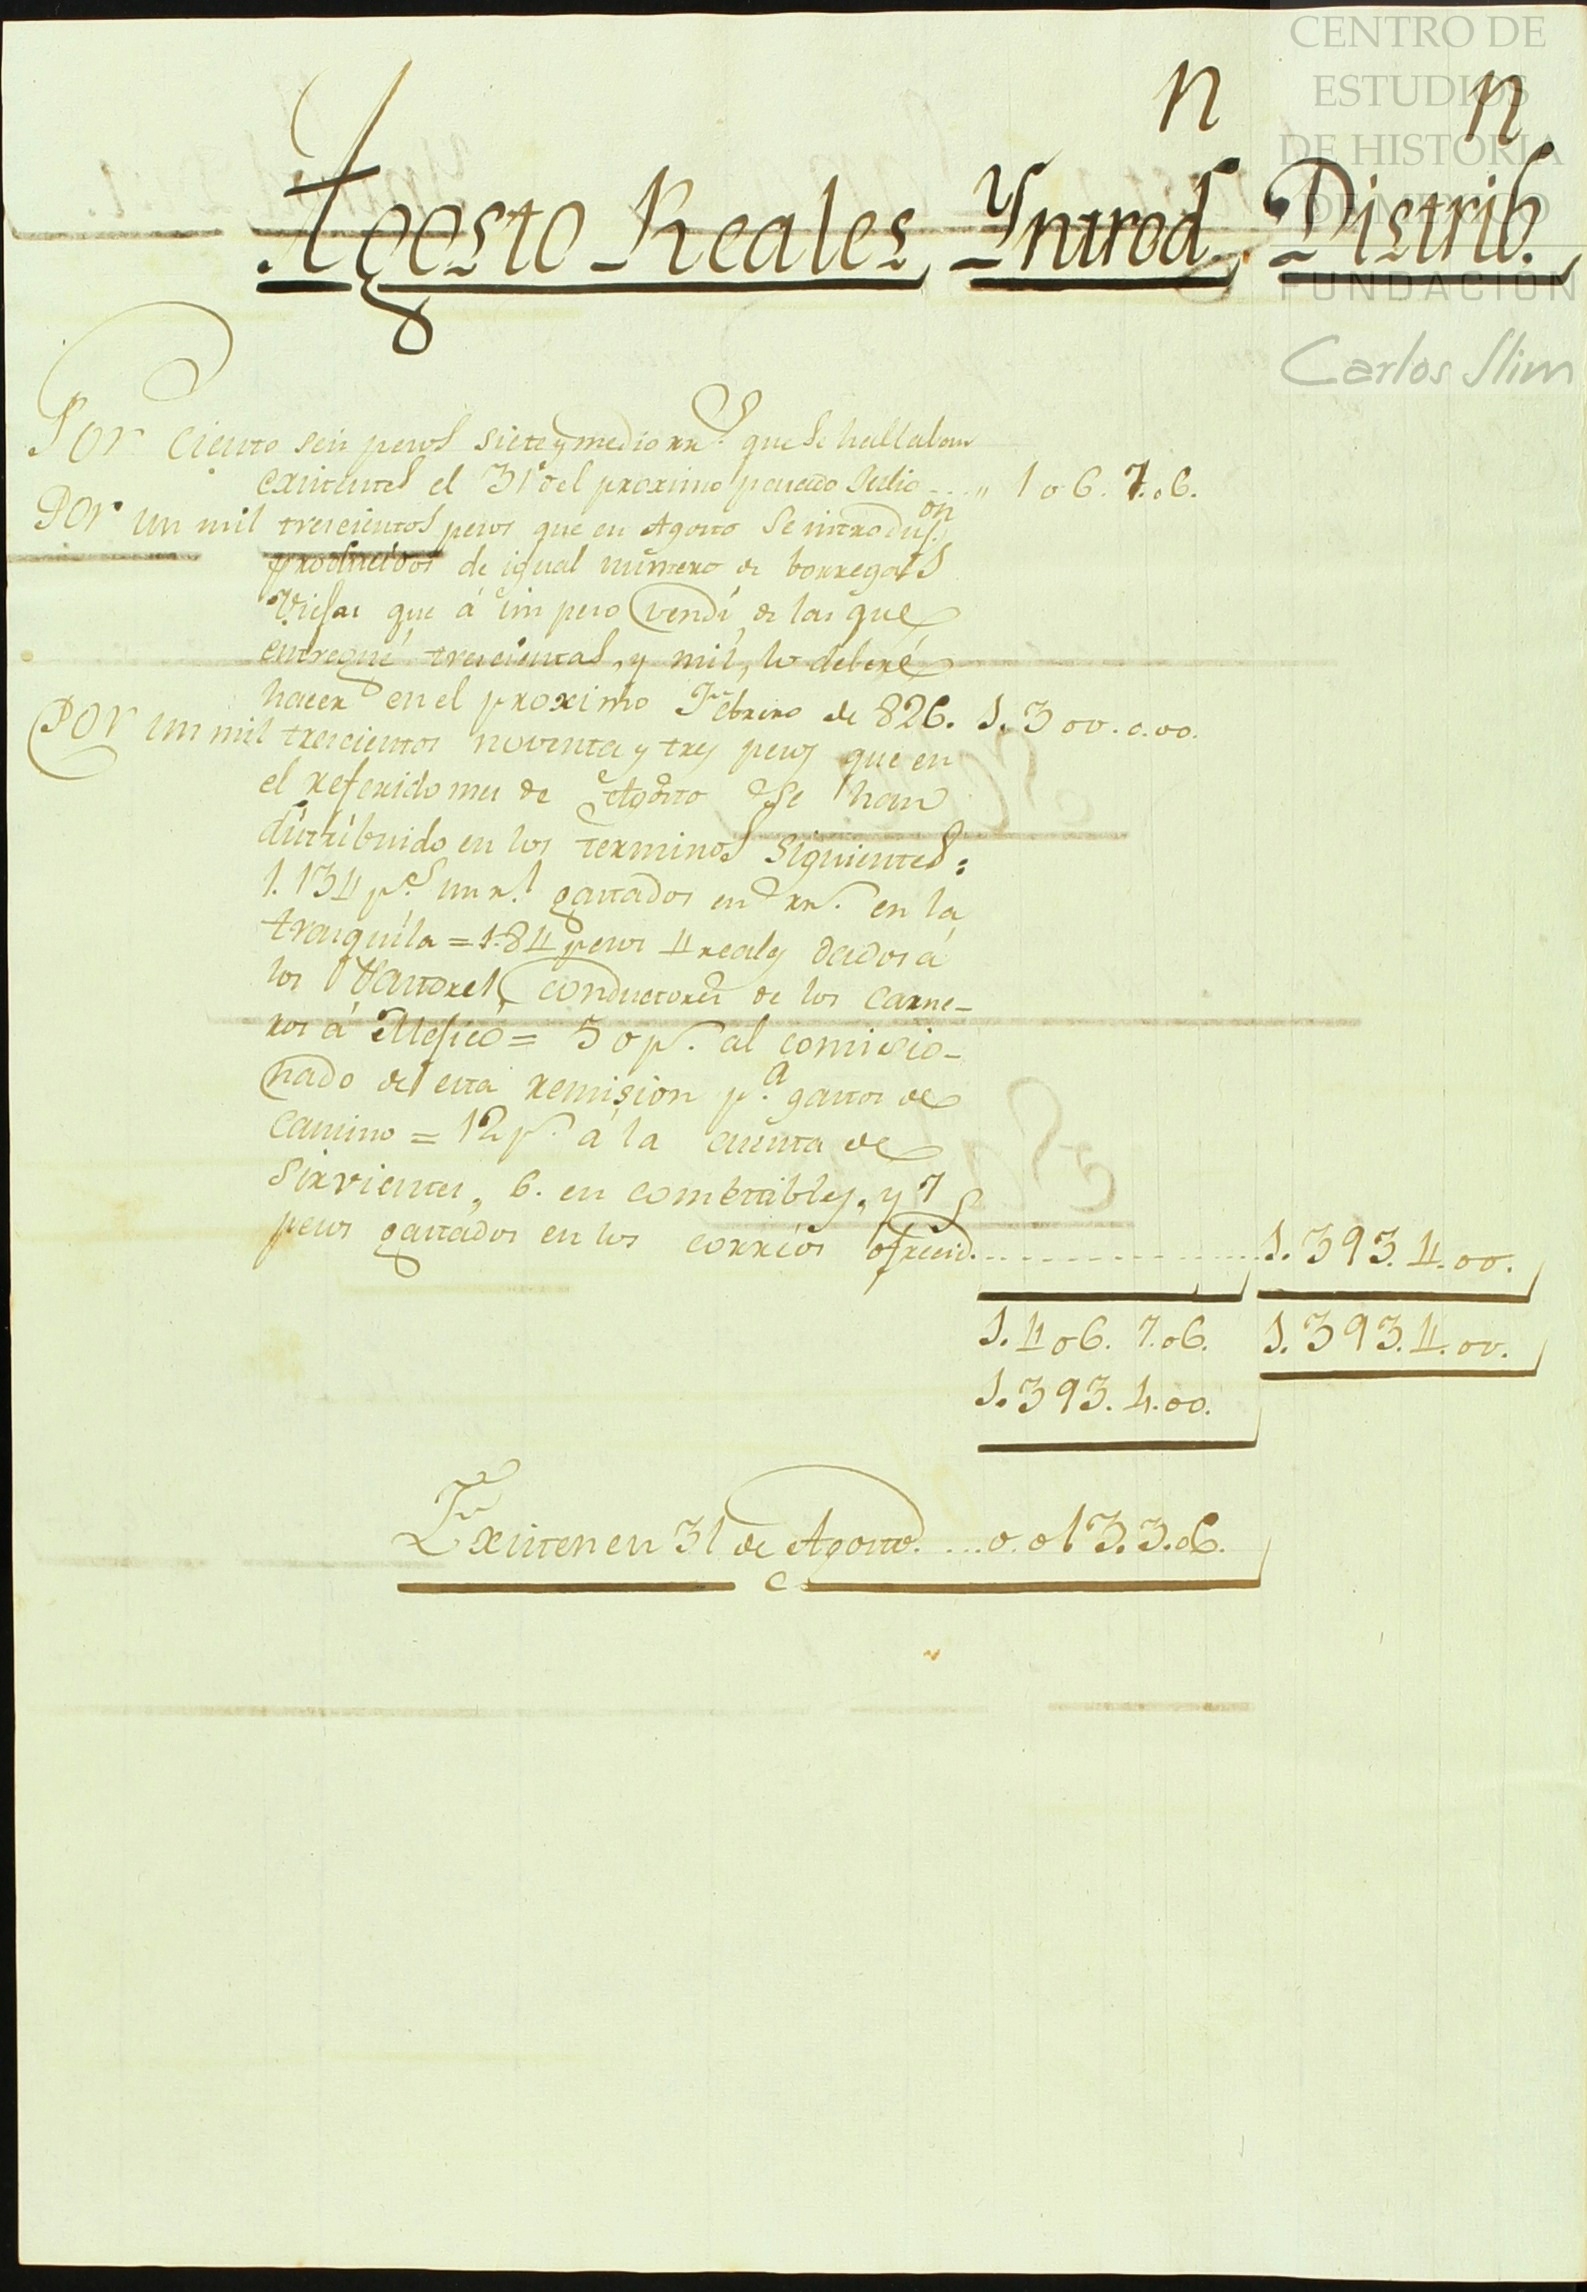 CENTRO DE
ESTUDIOS
DE HISTORIA
DE MÉXICO
FUNDACIÓN
Carlos Slim
Agosto Reales, Introd.n Distrib.n
Por ciento seis pesos siete y medio rr.s que se hallaban
existentes el 31 del proximo pasado Julio ... ,, 106. 7. 06.
Por un mil trescientos pesos que en Agosto se introdus.on
producidos de igual número de borregas
Viejas que á un peso vendí, de las que
entregué trescientas, y mil, lo deberé
hacer en el proximo Febrero de 826. 1. 300. 0. 00.
Por un mil trescientos noventa y tres pesos que en
el referido mes de Agosto se han
distribuido en los terminos siguientes:
1.134 p.es un r.l gastados en rr.s en la
trasquíla = 184 pesos 4 reales dados á
los Pastores, conductores de los carne-
ros á Mejico = 50 p.s al comisio-
nado de esta remision p.a gastos de
camino = 12 p.s á la cuenta de
Sirvientes, 6. en comestibles, y 7
pesos gastados en los corréos ofrecid.s ... 1. 393. 4. 00.
1. 406. 7. 06. 1. 393. 4. 00.
1. 393. 4. 00.
Existen en 31 de Agosto. ... 0. 013. 3. 06.